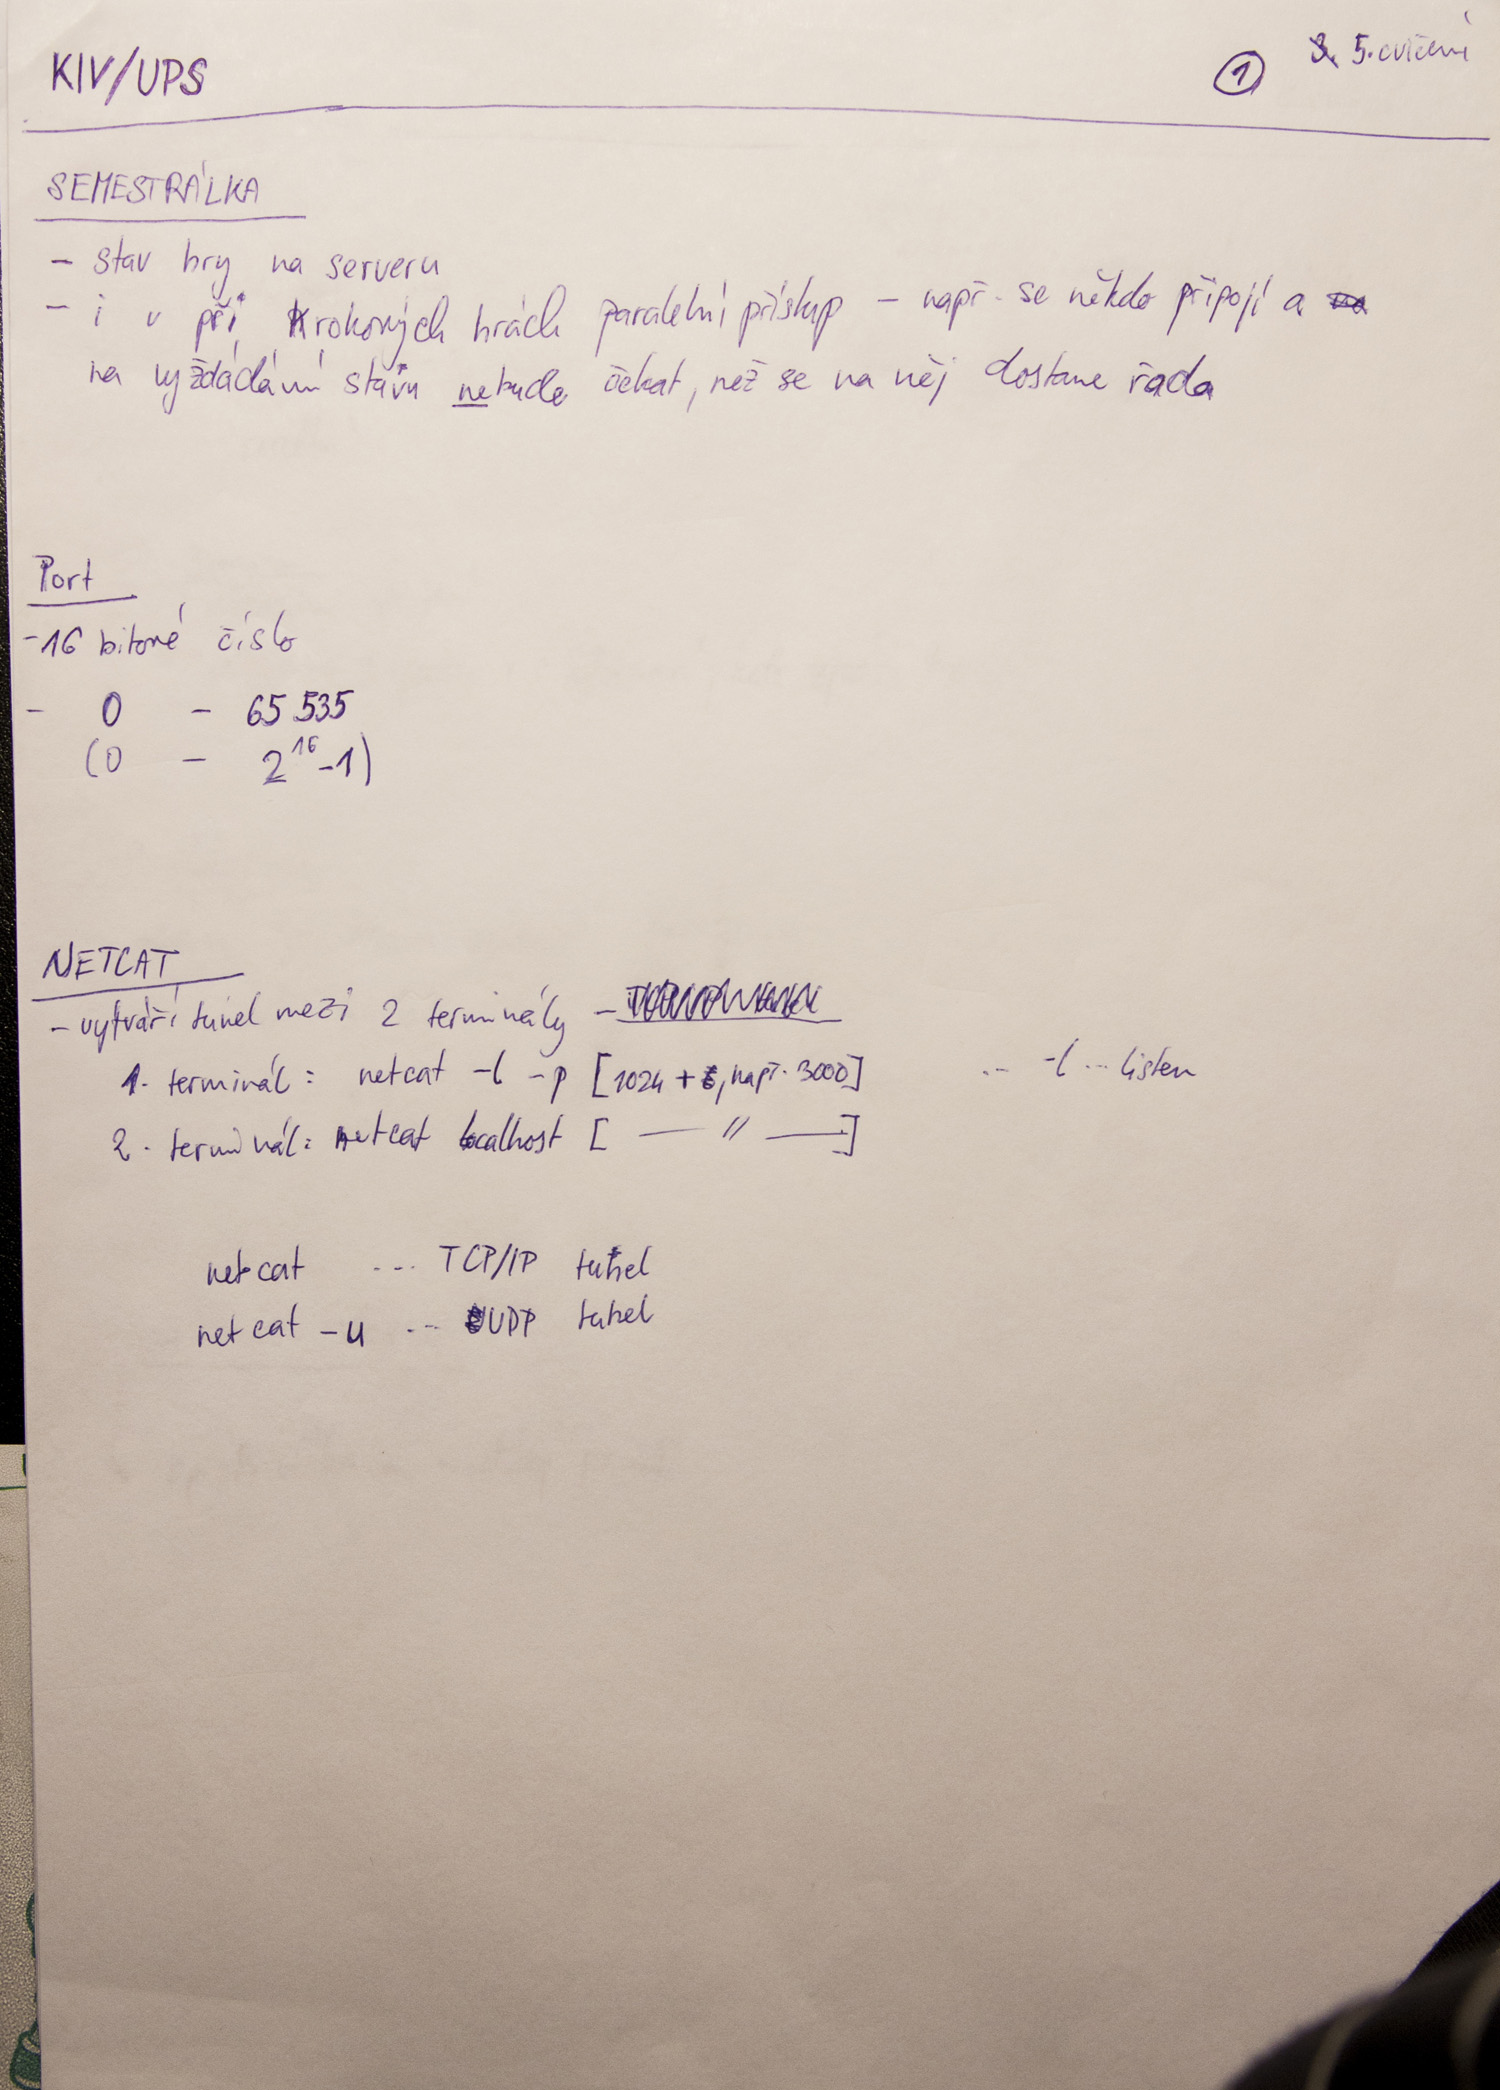 KIV/UPS
① 5. cvičení
SEMESTRÁLKA
- stav hry na serveru
- i v při krokových hrách paralelní přístup - např. se někdo připojí a
na vyždádání stavu nebude čekat, než se na něj dostane řada
Port
- 16 bitové číslo
- 0 - 65 535
(0 - 2^16 - 1)
NETCAT
- vytváří tunel mezi 2 terminály -
1. terminál: netcat -l -p [1024 +, např. 3000] ... -l ... listen
2. terminál: netcat localhost [ — // — ]
netcat ... TCP/IP tunel
netcat -u ... UDP tunel